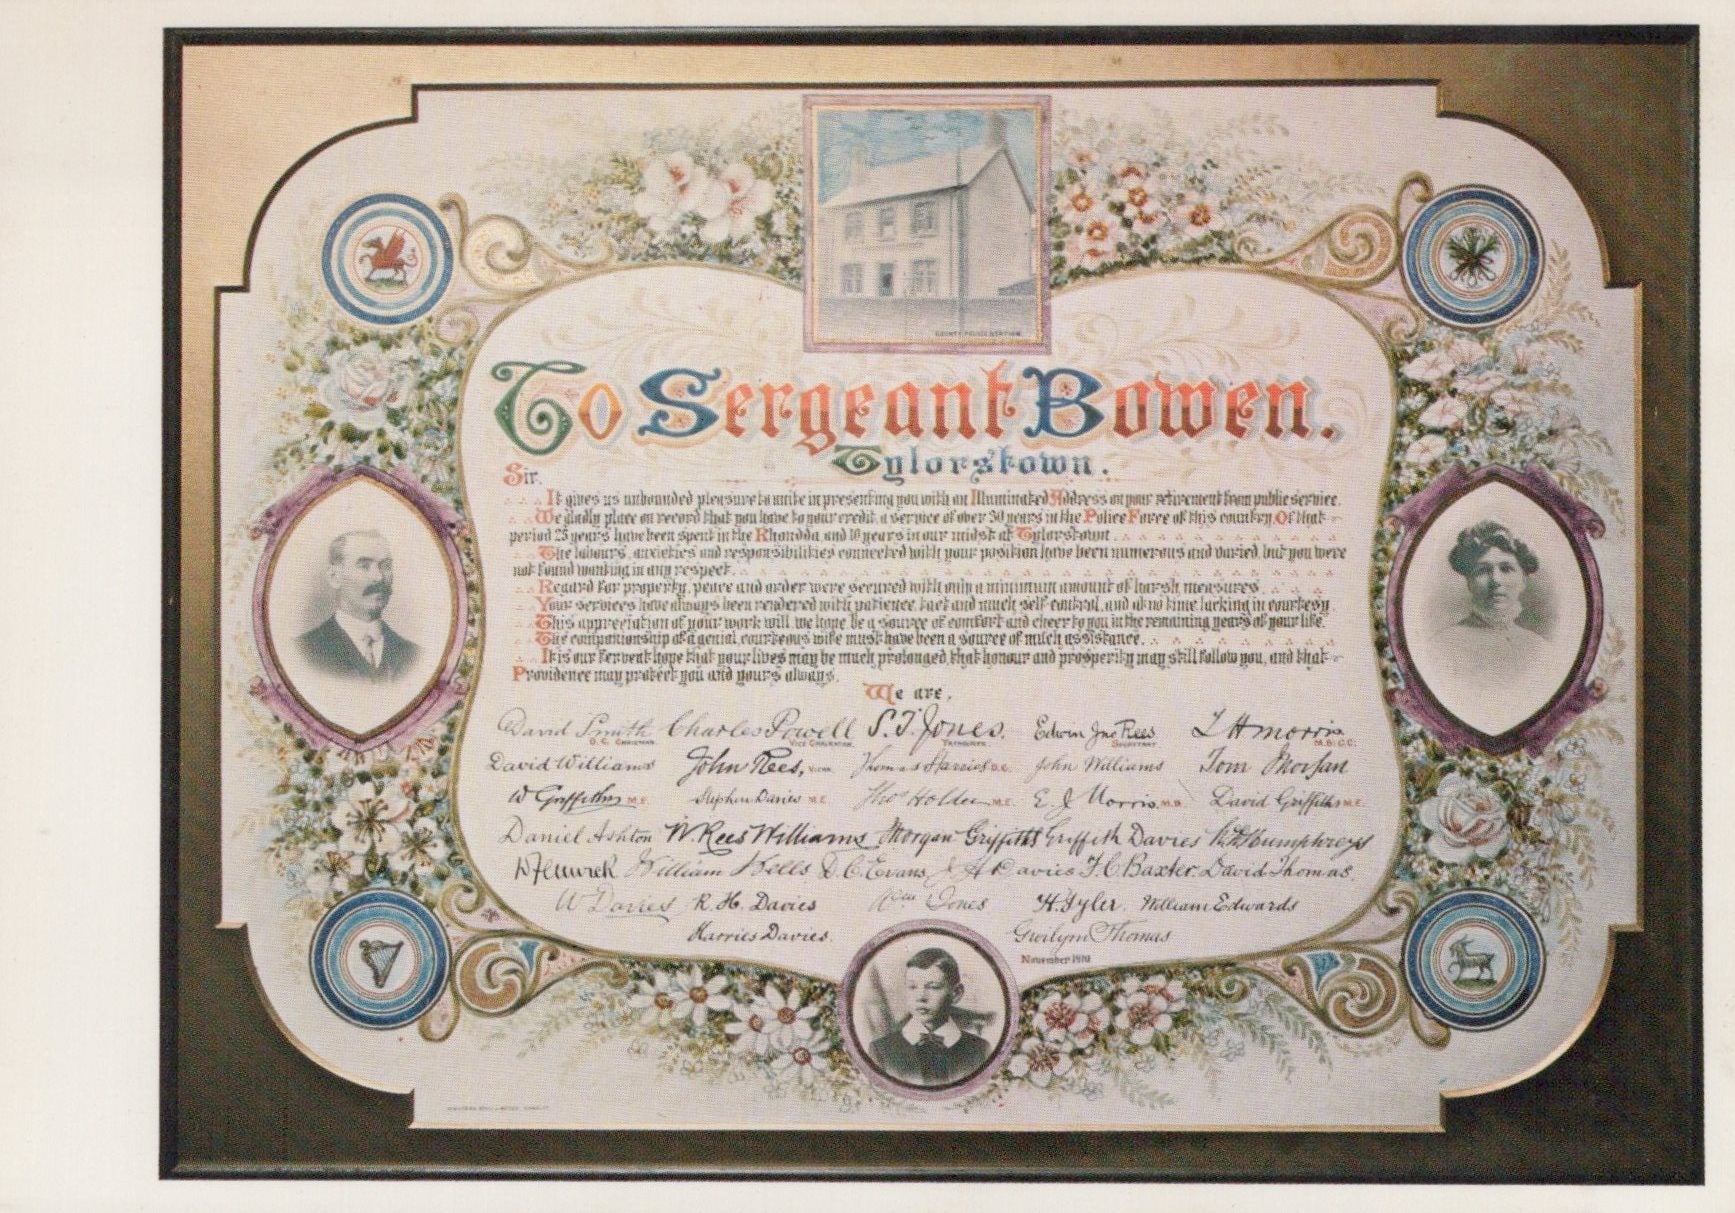 COUNTY POLICE STATION
To Sergeant Bowen.
Tylorstown.
Sir,
It gives us unbounded pleasure to unite in presenting you with an Illuminated Address on your retirement from public service.
We gladly place on record that you have to your credit, a service of over 30 years in the Police Force of this country. Of that
period 25 years have been spent in the Rhondda and 16 years in our midst at Tylorstown
The labours, anxieties and responsibilities connected with your position have been numerous and varied, but you were
not found wanting in any respect.
Regard for property, peace and order were secured with only a minimum amount of harsh measures.
Your services have always been rendered with patience, tact and much self control, and at no time lacking in courtesy.
This appreciation of your work will we hope be a source of comfort and cheer to you in the remaining years of your life.
The companionship of a genial courteous wife must have been a source of much assistance.
It is our fervent hope that your lives may be much prolonged, that honour and prosperity may still follow you, and that
Providence may protect you and yours always.
We are,
David Smith Charles Powell S. T. Jones. Edwin Jno Rees T H Morris
D.C. CHAIRMAN. VICE CHAIRMAN. TREASURER. SECRETARY M.B.; C.C.
David Williams John Rees, VICAR. Thomas Harries D.C. John Williams Tom Morgan
W Griffiths M.E. Stephen Davies M.E. Thos Holden M.E. E. J Morris. M.B. David Griffiths M.E.
Daniel Ashton W. Rees Williams Morgan Griffiths Griffith Davies Humphreys
William Kells D. C. Evans J A Davies F. C. Baxter David Thomas.
W Davies R. H. Davies Wm Jones H. Tyler. William Edwards
Harries Davies. Gwilym Thomas
November 1910